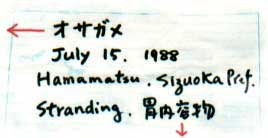 オサガメ
July 15. 1988
Hamamatsu. Sizuoka Pref.
Stranding. 胃内容物